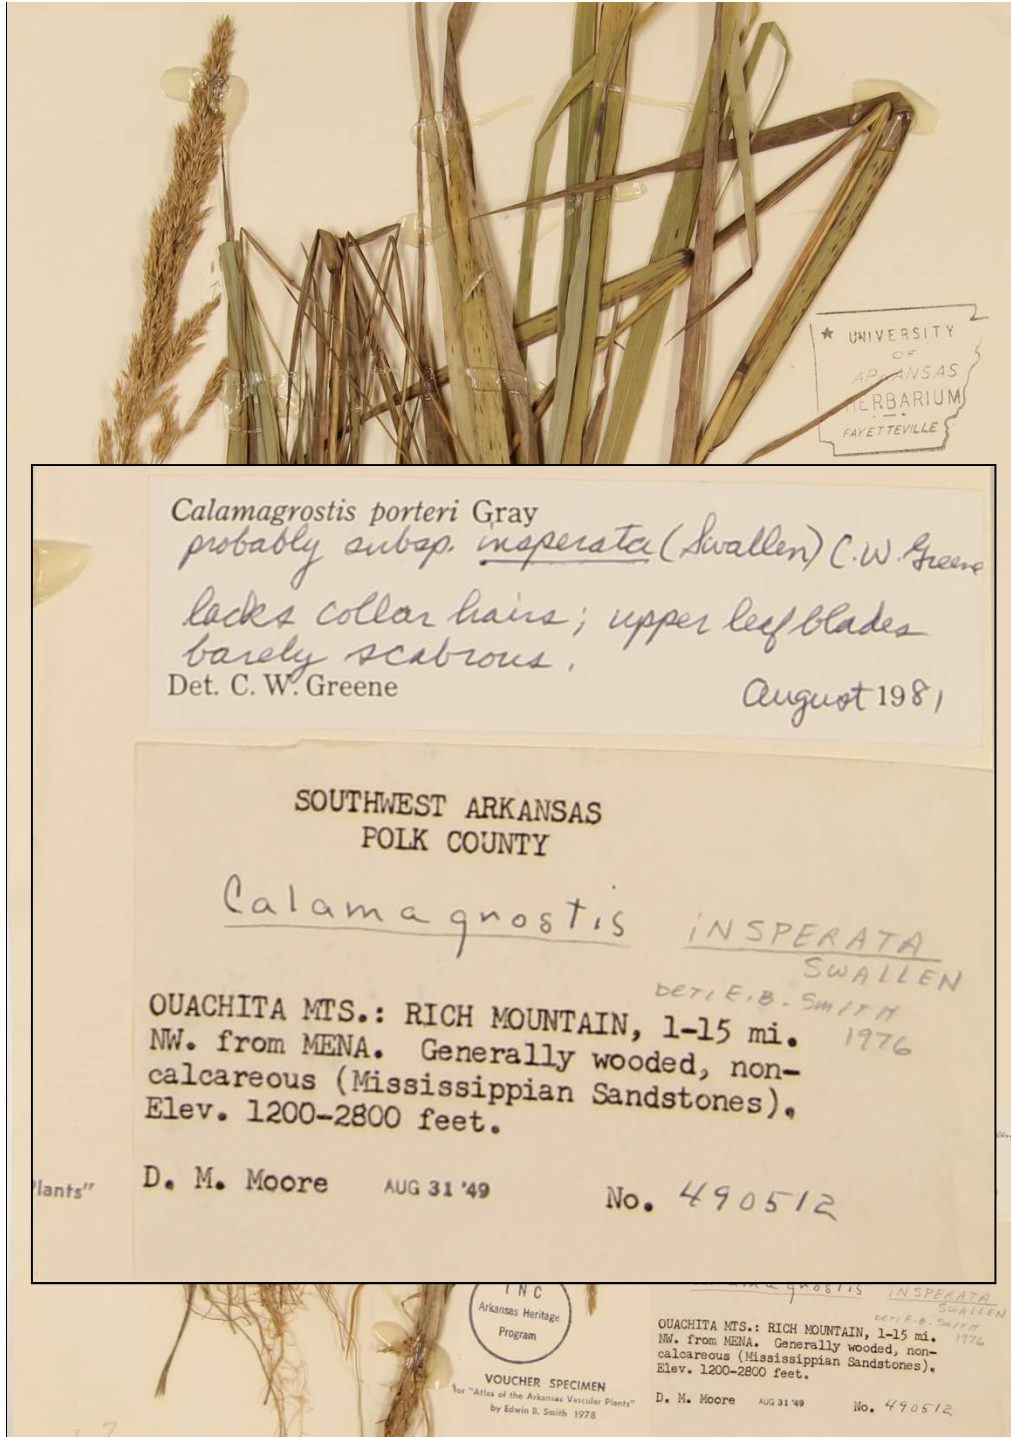 ★ UNIVERSITY
OF
ARKANSAS
HERBARIUM
FAYETTEVILLE
Calamagrostis porteri Gray
probably subsp. insperata (Swallen) C. W. Greene
lacks collar hairs; upper leaf blades
barely scabrous.
Det. C. W. Greene August 1981
SOUTHWEST ARKANSAS
POLK COUNTY
Calamagnostis INSPERATA
SWALLEN
DET; E. B. SMITH
1976
OUACHITA MTS.: RICH MOUNTAIN, 1-15 mi.
NW. from MENA. Generally wooded, non-
calcareous (Mississippian Sandstones).
Elev. 1200-2800 feet.
lants"
D. M. Moore AUG 31 '49 No. 490512
INC
Arkansas Heritage
Program
VOUCHER SPECIMEN
for "Atlas of the Arkansas Vascular Plants"
by Edwin B. Smith 1978
INSPERATA
SWALLEN
DET; E. B. SMITH
1976
OUACHITA MTS.: RICH MOUNTAIN, 1-15 mi.
NW. from MENA. Generally wooded, non-
calcareous (Mississippian Sandstones).
Elev. 1200-2800 feet.
D. M. Moore AUG 31 '49 No. 490512